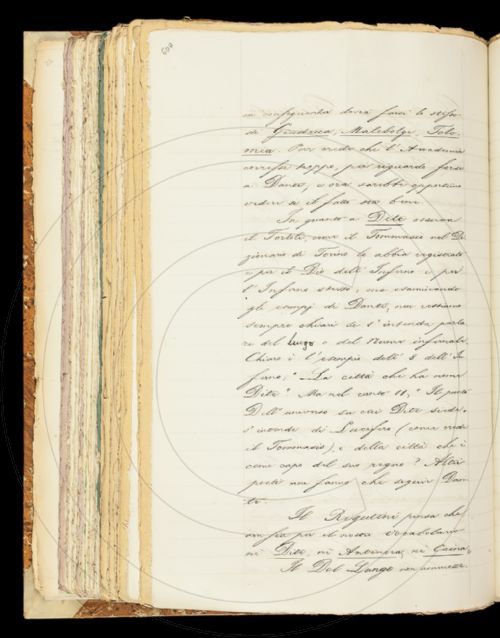 in conseguenza dovrà farsi lo stesso
di Giudecca, Malebolge, Tolo-
mea. Pur vedo che l'Accademia
troppo, per riguardo forse
a Dante, e ora sarebbe opportuno
vedere se il fatto sta bene.
In quanto a Dite osserva
il Tortoli, come il Tommaseo nel Di-
zionario di Torino lo abbia registrato
e per il Dio dell'Inferno e per
l'Inferno stesso; ma esaminando
gli esempj di Dante, non
sempre chiari se s'intenda parla-
re del luogo o del Nume infernale.
Chiaro è l'esempio dell'8 dell'In-
ferno; "La città che ha nome
Dite" Ma nel canto 11; "Il punto
Dell'universo su che Dite siede,"
s'intende di Lucifero (come vede
il Tommaseo), o della città che è
come capo del suo regno? Altri
poeti non fanno che seguir Dan-
te.
Il Rigutini pensa che
non sia per il nostro Vocabolario
nè Dite, nè Antenora, nè Caina.
Il Del Lungo non ammette